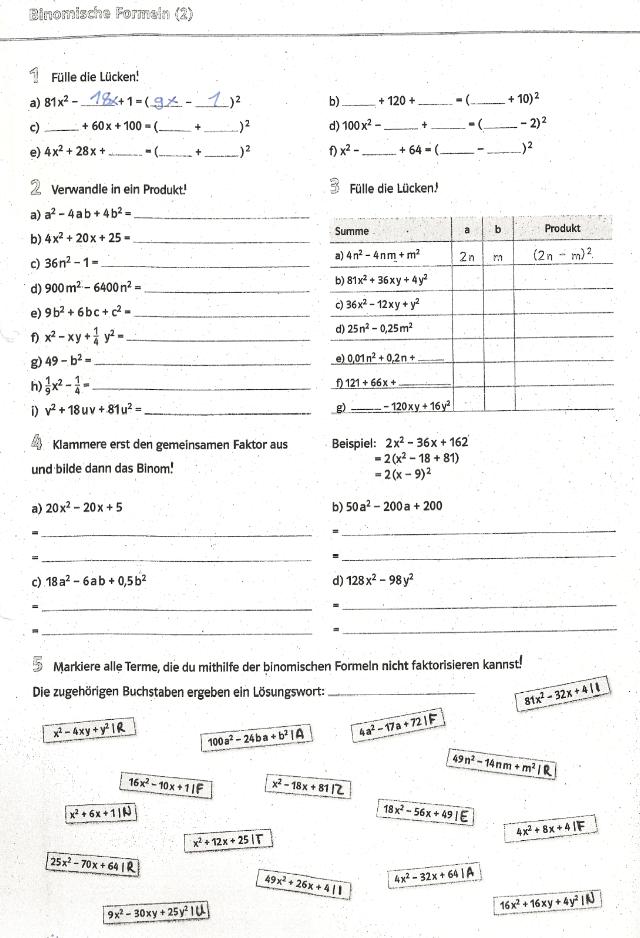 Binomische Formeln (2)
1 Fülle die Lücken!
a) 81x² – 18x + 1 = ( 9x – 1 )²
b) ______ + 120 + ______ = (______ + 10)²
c) ______ + 60x + 100 = (______ + ______)²
d) 100x² – ______ + ______ = (______ – 2)²
e) 4x² + 28x + ______ = (______ + ______)²
f) x² – ______ + 64 = (______ – ______)²
2 Verwandle in ein Produkt!
a) a² – 4ab + 4b² = ______
b) 4x² + 20x + 25 = ______
c) 36n² – 1 = ______
d) 900m² – 6400n² = ______
e) 9b² + 6bc + c² = ______
f) x² – xy + 1/4 y² = ______
g) 49 – b² = ______
h) 1/9 x² – 1/4 = ______
i) v² + 18uv + 81u² = ______
3 Fülle die Lücken!
Summe a b Produkt
a) 4n² – 4nm + m² 2n m (2n – m)²
b) 81x² + 36xy + 4y²
c) 36x² – 12xy + y²
d) 25n² – 0,25m²
e) 0,01n² + 0,2n + ______
f) 121 + 66x + ______
g) ______ – 120xy + 16y²
4 Klammere erst den gemeinsamen Faktor aus
und bilde dann das Binom!
Beispiel: 2x² – 36x + 162
= 2(x² – 18 + 81)
= 2(x – 9)²
a) 20x² – 20x + 5
= ______
= ______
b) 50a² – 200a + 200
= ______
= ______
c) 18a² – 6ab + 0,5b²
= ______
= ______
d) 128x² – 98y²
= ______
= ______
5 Markiere alle Terme, die du mithilfe der binomischen Formeln nicht faktorisieren kannst!
Die zugehörigen Buchstaben ergeben ein Lösungswort: ______
81x² – 32x + 4 | I
x² – 4xy + y² | R
100a² – 24ba + b² | A
4a² – 17a + 72 | F
49n² – 14nm + m² | R
16x² – 10x + 1 | F
x² – 18x + 81 | Z
x² + 6x + 1 | N
18x² – 56x + 49 | E
4x² + 8x + 4 | F
x² + 12x + 25 | T
25x² – 70x + 64 | R
49x² + 26x + 4 | I
4x² – 32x + 64 | A
9x² – 30xy + 25y² | U
16x² + 16xy + 4y² | N